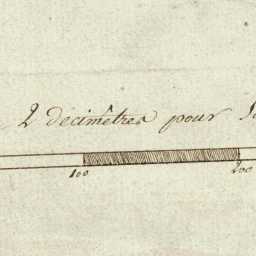 2 décimêtres pour
100 200